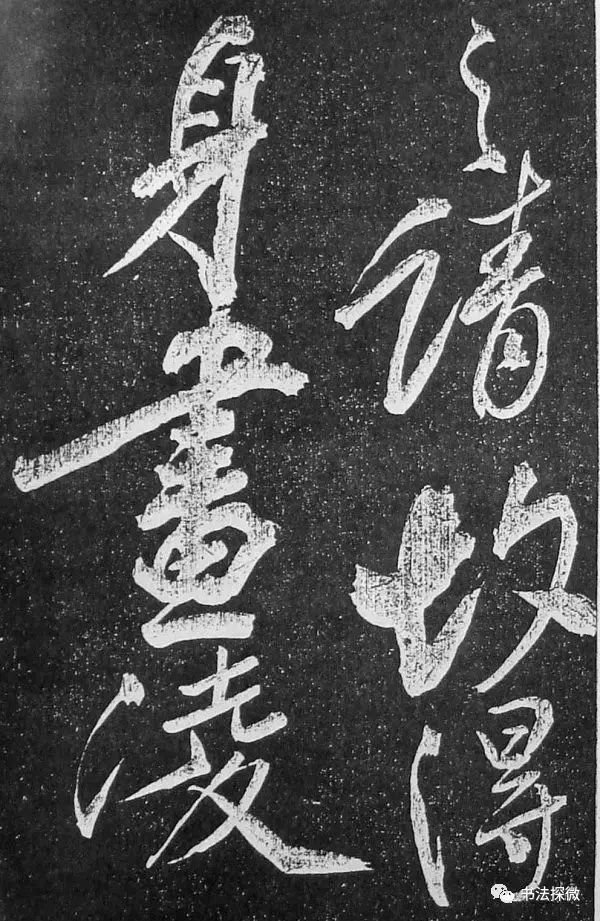 之請故得
身畫凌
书法探微